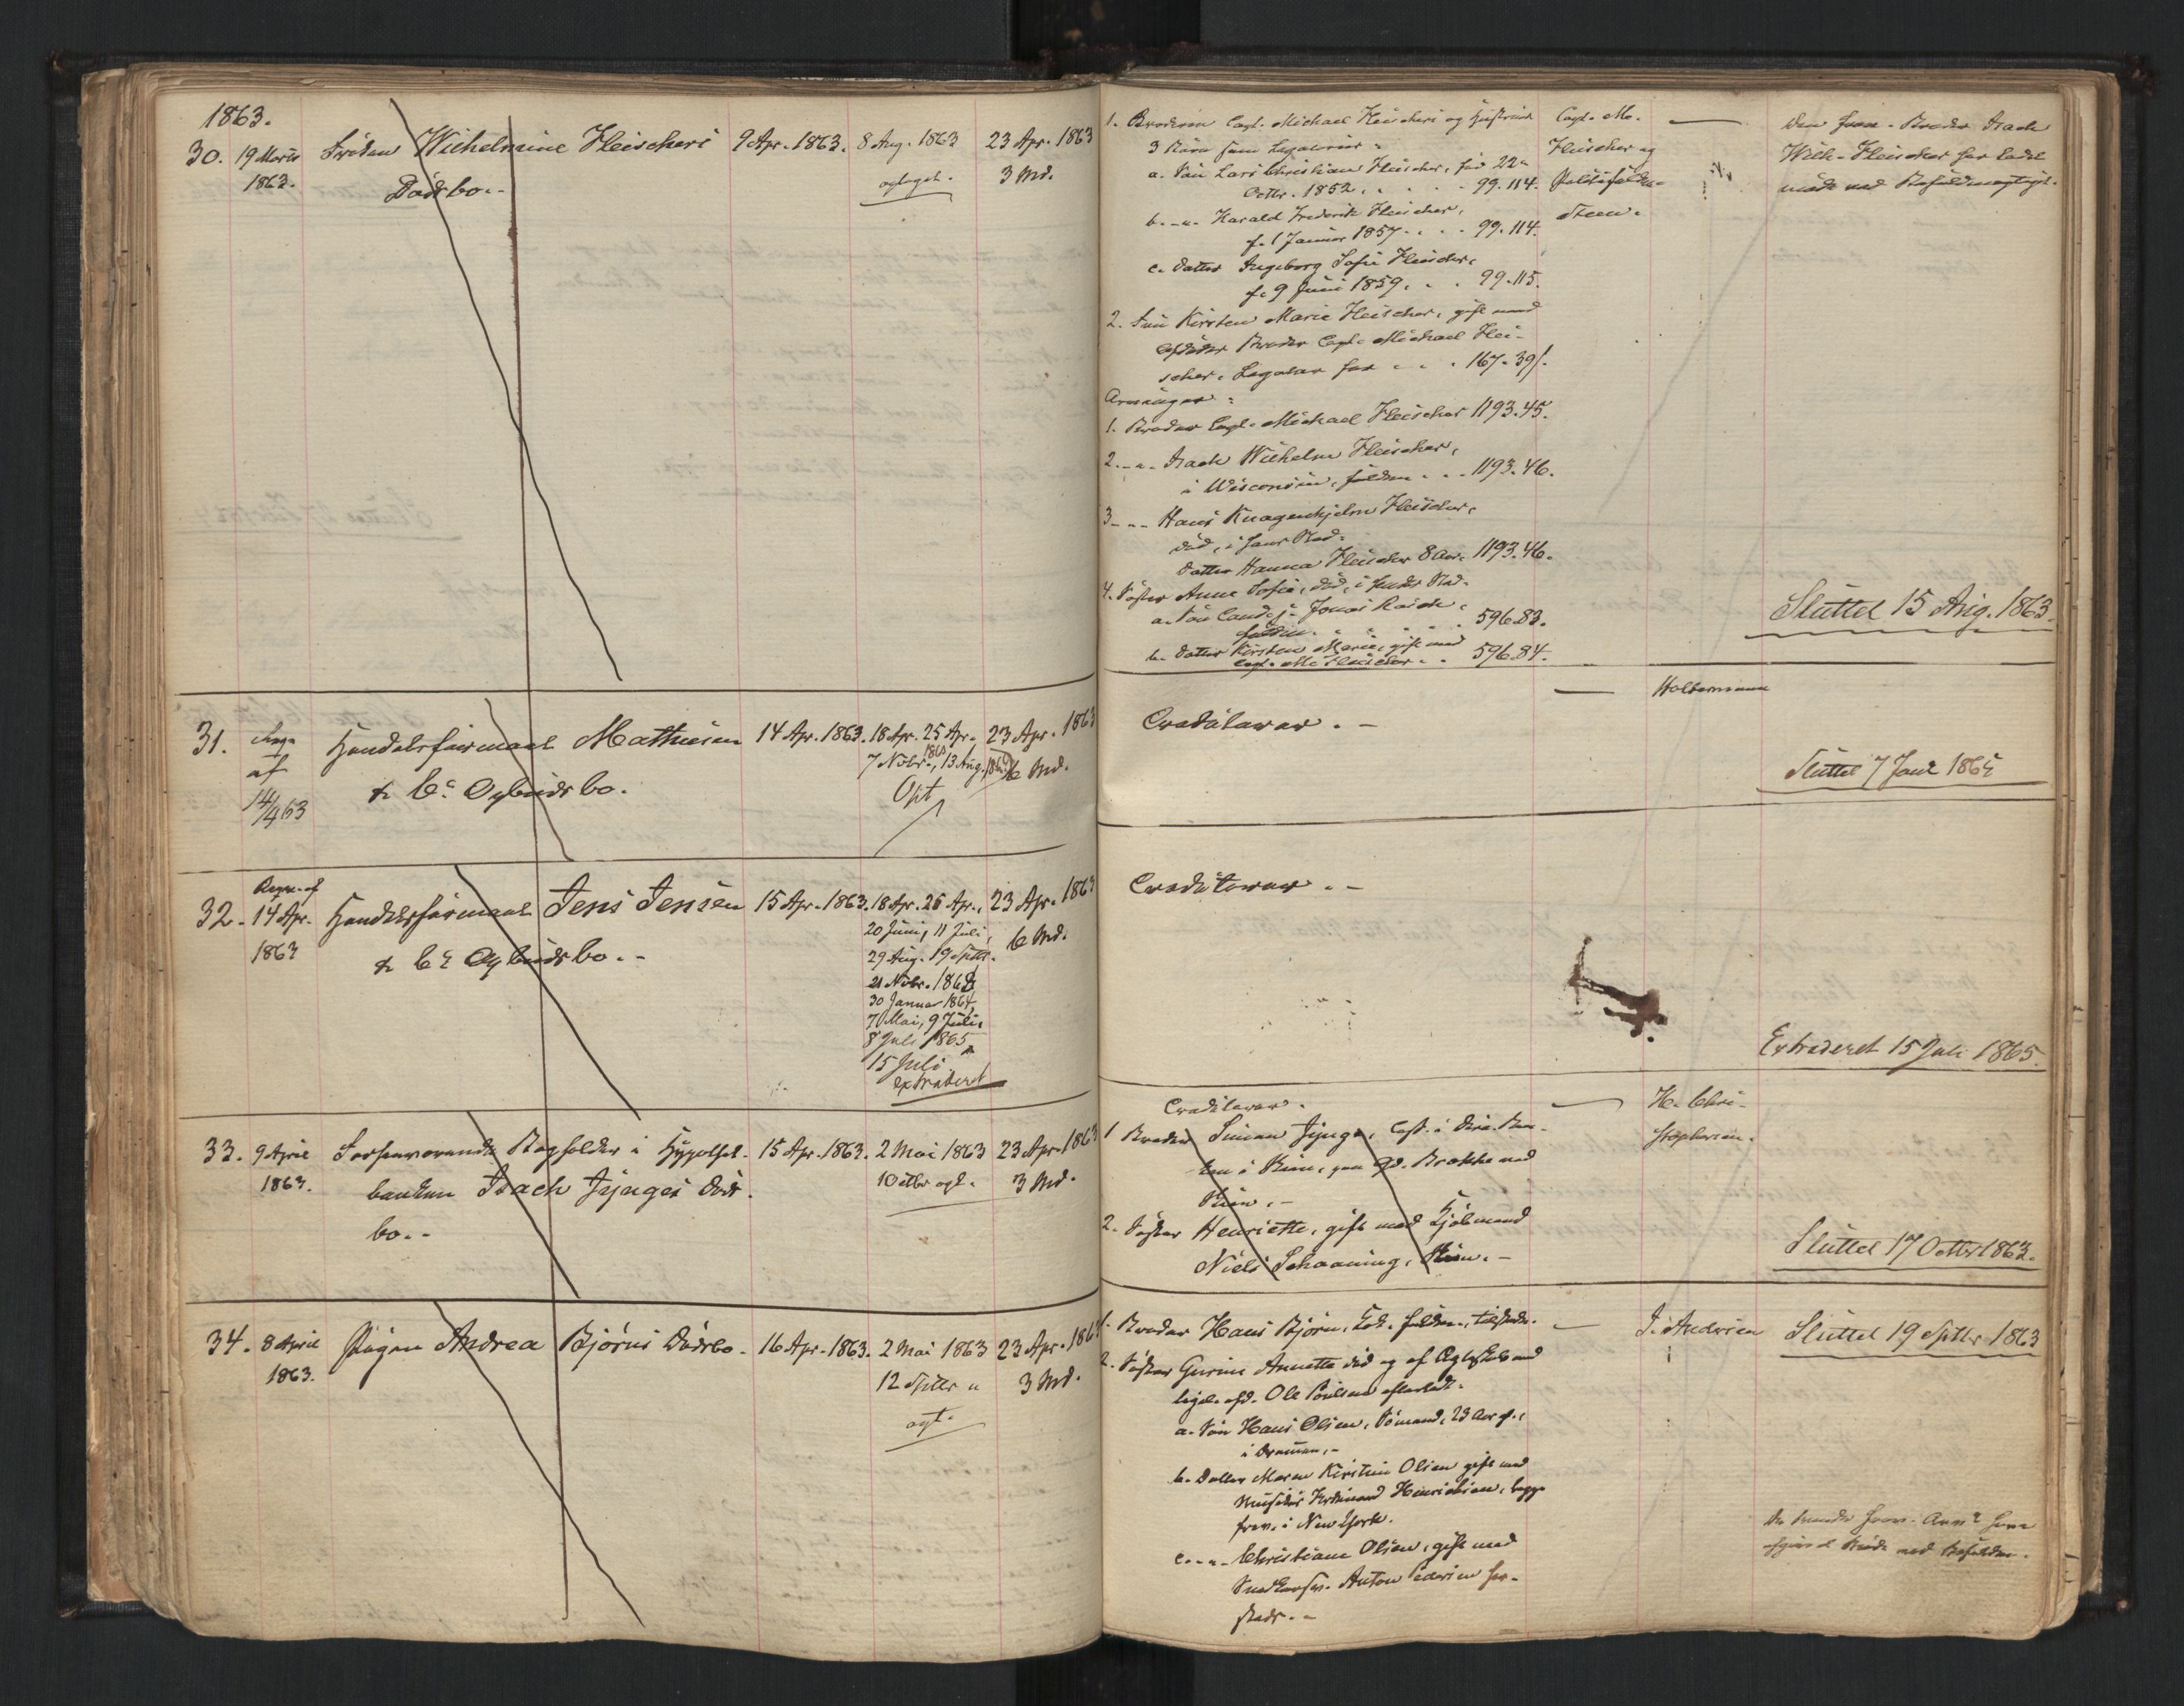 1863.
30. 19 Marts 1863. Frøken Wilhelmine Fleischers Dødsbo.- 9 Apr. 1863. 8 Aug. 1863 opgegt. 23 Apr. 1863 3 Md.
31. af 14/4 63 Handelsfirmaet Mathiesen & Co Opbudsbo. 14 Apr. 1863. 18 Apr. 25 Apr. 7 Novbr. 1863, 13 Aug. Opt 23 Apr. 1863 6 Md.
32. af 14 Apr. 1863 Handelsfirmaet Jens Jensen & Co Opbudsbo.- 15 Apr. 1863. 18 Apr. 25 Apr., 23 Apr. 1863 6 Md.
20 Juni, 11 Juli,
29 Aug. 19 Septbr.
21 Novbr. 1863
30 Januar 1864,
7 Mai, 9 Juli,
8 Juli 1865
15 Juli
extraderet
33. 9 April 1863. Bogholder i Hypothek-
banken Isach Jynges Døds-
bo.- 15 Apr. 1863. 2 Mai 1863 10 Octbr opt. 23 Apr. 1863 3 Md.
34. 8 April 1863. Pigen Andrea Bjørns Dødsbo. 16 Apr. 1863. 2 Mai 1863 12 Septbr opt. 23 Apr. 1863 3 Md.
1. Broderen Capt. Michael Fleischers og Hustrues
3 Børn som Legatarier:
a. Søn Lars Christian Fleischer, fød 22
Octbr. 1852, . . . 99.114.
b. -"- Harald Frederik Fleischer,
f. 1 Januar 1857 . . . 99.114.
c. Datter Ingeborg Sofie Fleischer,
f. 9 Juni 1859. . . 99.115.
2. Fru Kirsten Marie Fleischer, gift med
Afdødes Broder Capt. Michael Flei-
scher, Legatar for . . . 167.39/.
Arvinger:
1. Broder Capt. Michael Fleischer 1193.45.
2. -"- Isach Wilhelm Fleischer,
i Wisconsin, fuldm. . . 1193.46.
3 -"- Hans Knagenhjelm Fleischer,
død, i hans Sted:
Datter Hanna Fleischer 8 Aar. 1193.46.
4. Søster Anne Sofie, død, i hendes Sted.
a. Søn Cand. j. Jonas Rasch,
fuldm. . . . 596.83.
b. Datter Kirsten Marie, gift med
Capt. M. Fleischer . . 596.84.
Capt. M.
Fleischer og
Politifuldm.
Steen.
Den frav. Broder Isach
Wilh. Fleischer har ladet
møde ved Befuldmægtiget.
Sluttet 15 Aug. 1863.
Creditorer. -
Haldermann
Sluttet 7 Jan 1865
Creditorer. -
Extraderet 15 Juli 1865.
Creditorer.
1 Broder Simen Jynge,
i Skien, paa Gd. Brække ved
Skien. -
2. Søster Henriette, gift med Kjøbmand
Niels Schaaning, Skien. -
H. Chri-
stophersen.
Sluttet 17 Octbr 1863.
1. Broder Hans Bjørn, fuldm., tilstede.
2. Søster Gurine Annette død og af Ægteskab med
ligel. afd. Ole Poulsen efterladt.
a. Søn Hans Olsen, Sømand, 23 Aar g.,
i Drammen. -
b. Datter Maren Kirstine Olsen gift med
Ferdinand Henriksen, begge
frav. i New York.
c. -"- Christiane Olsen, gift med
Snedkersv. Anton Pedersen her-
steds. -
J. Andersen
Sluttet 19 Septbr 1863